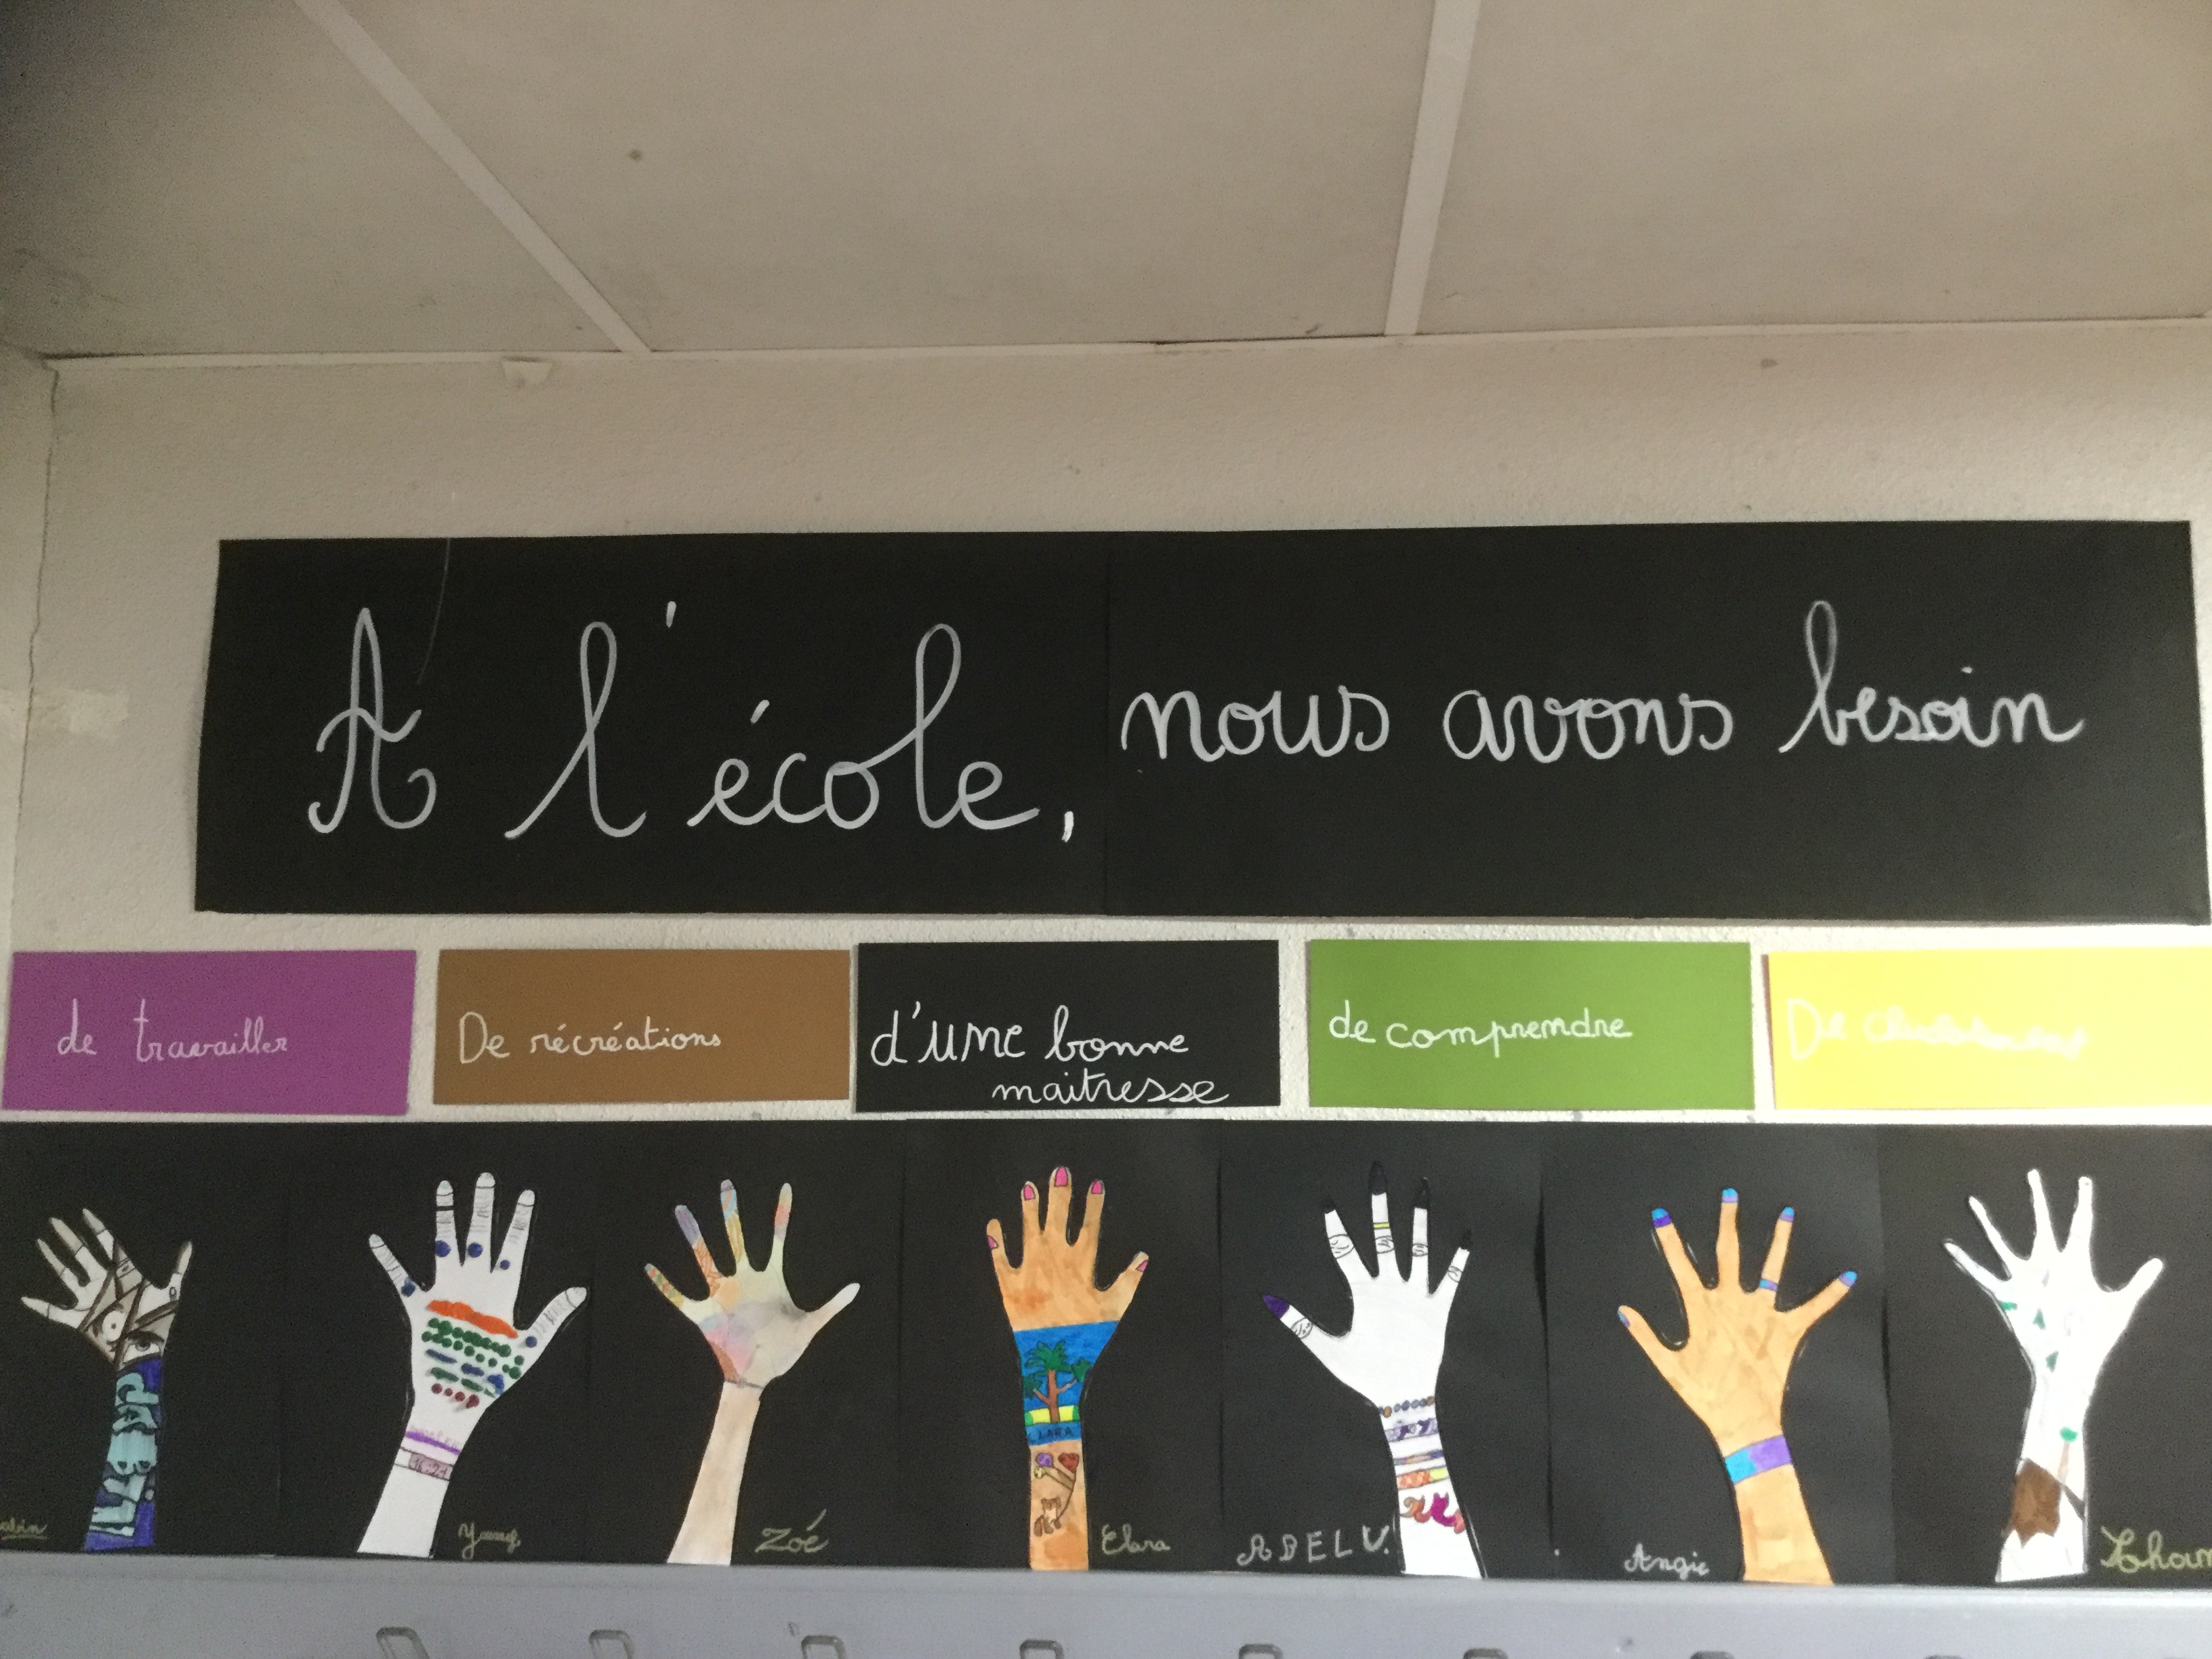 A l'école, nous avons besoin
de travailler
De récréations
d'une bonne
maitresse
de comprendre
De
CLARA
16:21
Zoé
Clara
ABEL V.
Angie